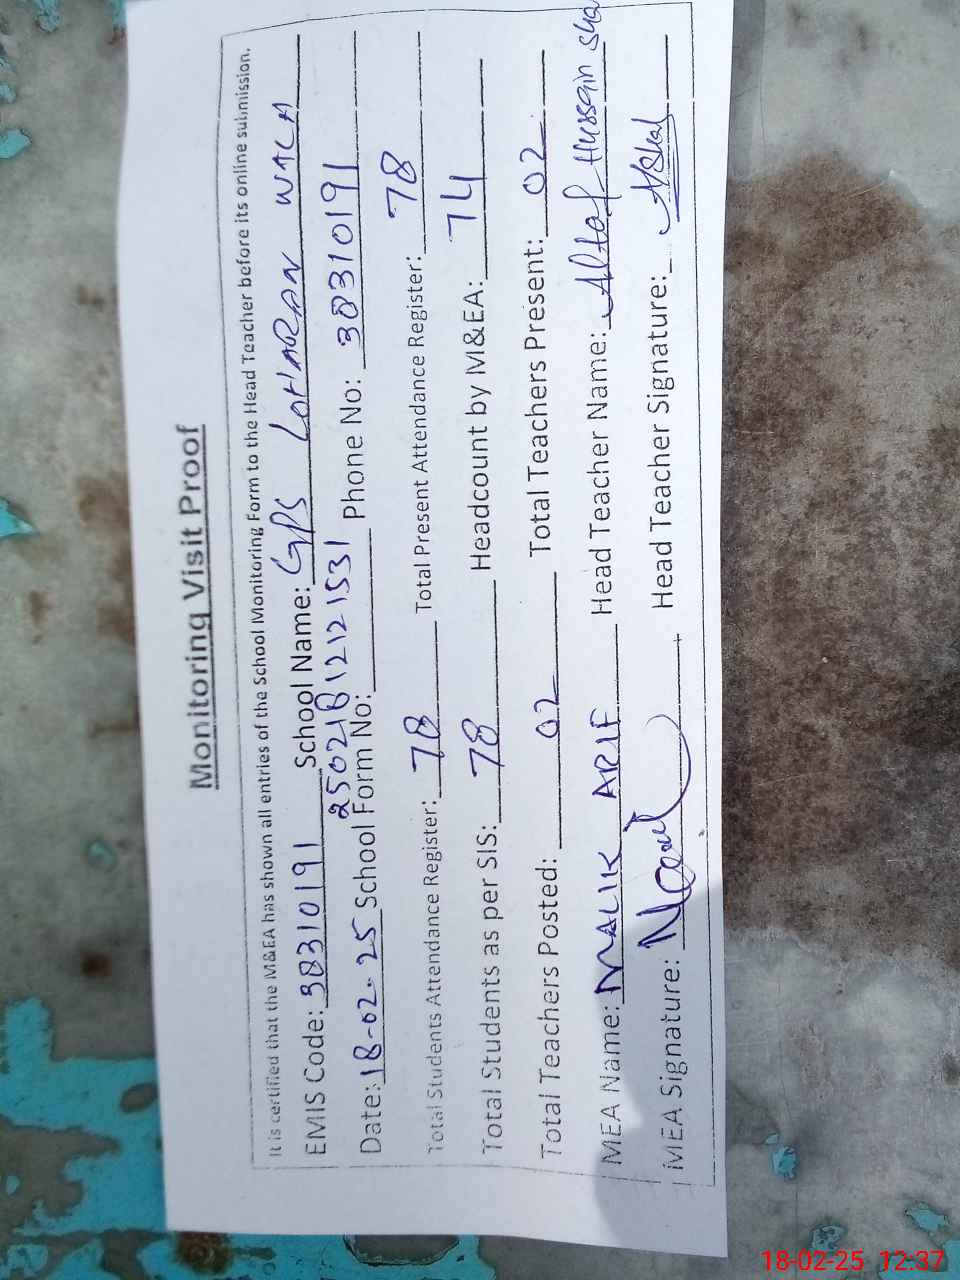 Monitoring Visit Proof
It is certified that the M&EA has shown all entries of the School Monitoring Form to the Head Teacher before its online submission.
EMIS Code: 38310191 School Name: GPS LOHARAN WALA
Date: 18-02-25 School Form No: 250218121531 Phone No: 38310191
Total Students Attendance Register: 78 Total Present Attendance Register: 78
Total Students as per SIS: 78 Headcount by M&EA: 74
Total Teachers Posted: 02 Total Teachers Present: 02
MEA Name: MALIK ARIF Head Teacher Name: Altaf Hussain
MEA Signature: Head Teacher Signature:
18-02-25 12:37